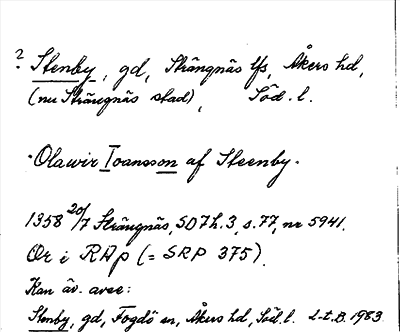 ? Stenby, gd, Strängnäs lfs, Åkers hd,
(nu Strängnäs stad), Söd. l.
"Olawir Ioansson af Steenby.
1358 20/7 Strängnäs, SD 7 h. 3, s. 77, nr 5941.
Or i RAp (= SRP 375).
Kan äv. avse:
Stenby, gd, Fogdö sn, Åkers hd, Söd. l. L-t.B. 1983